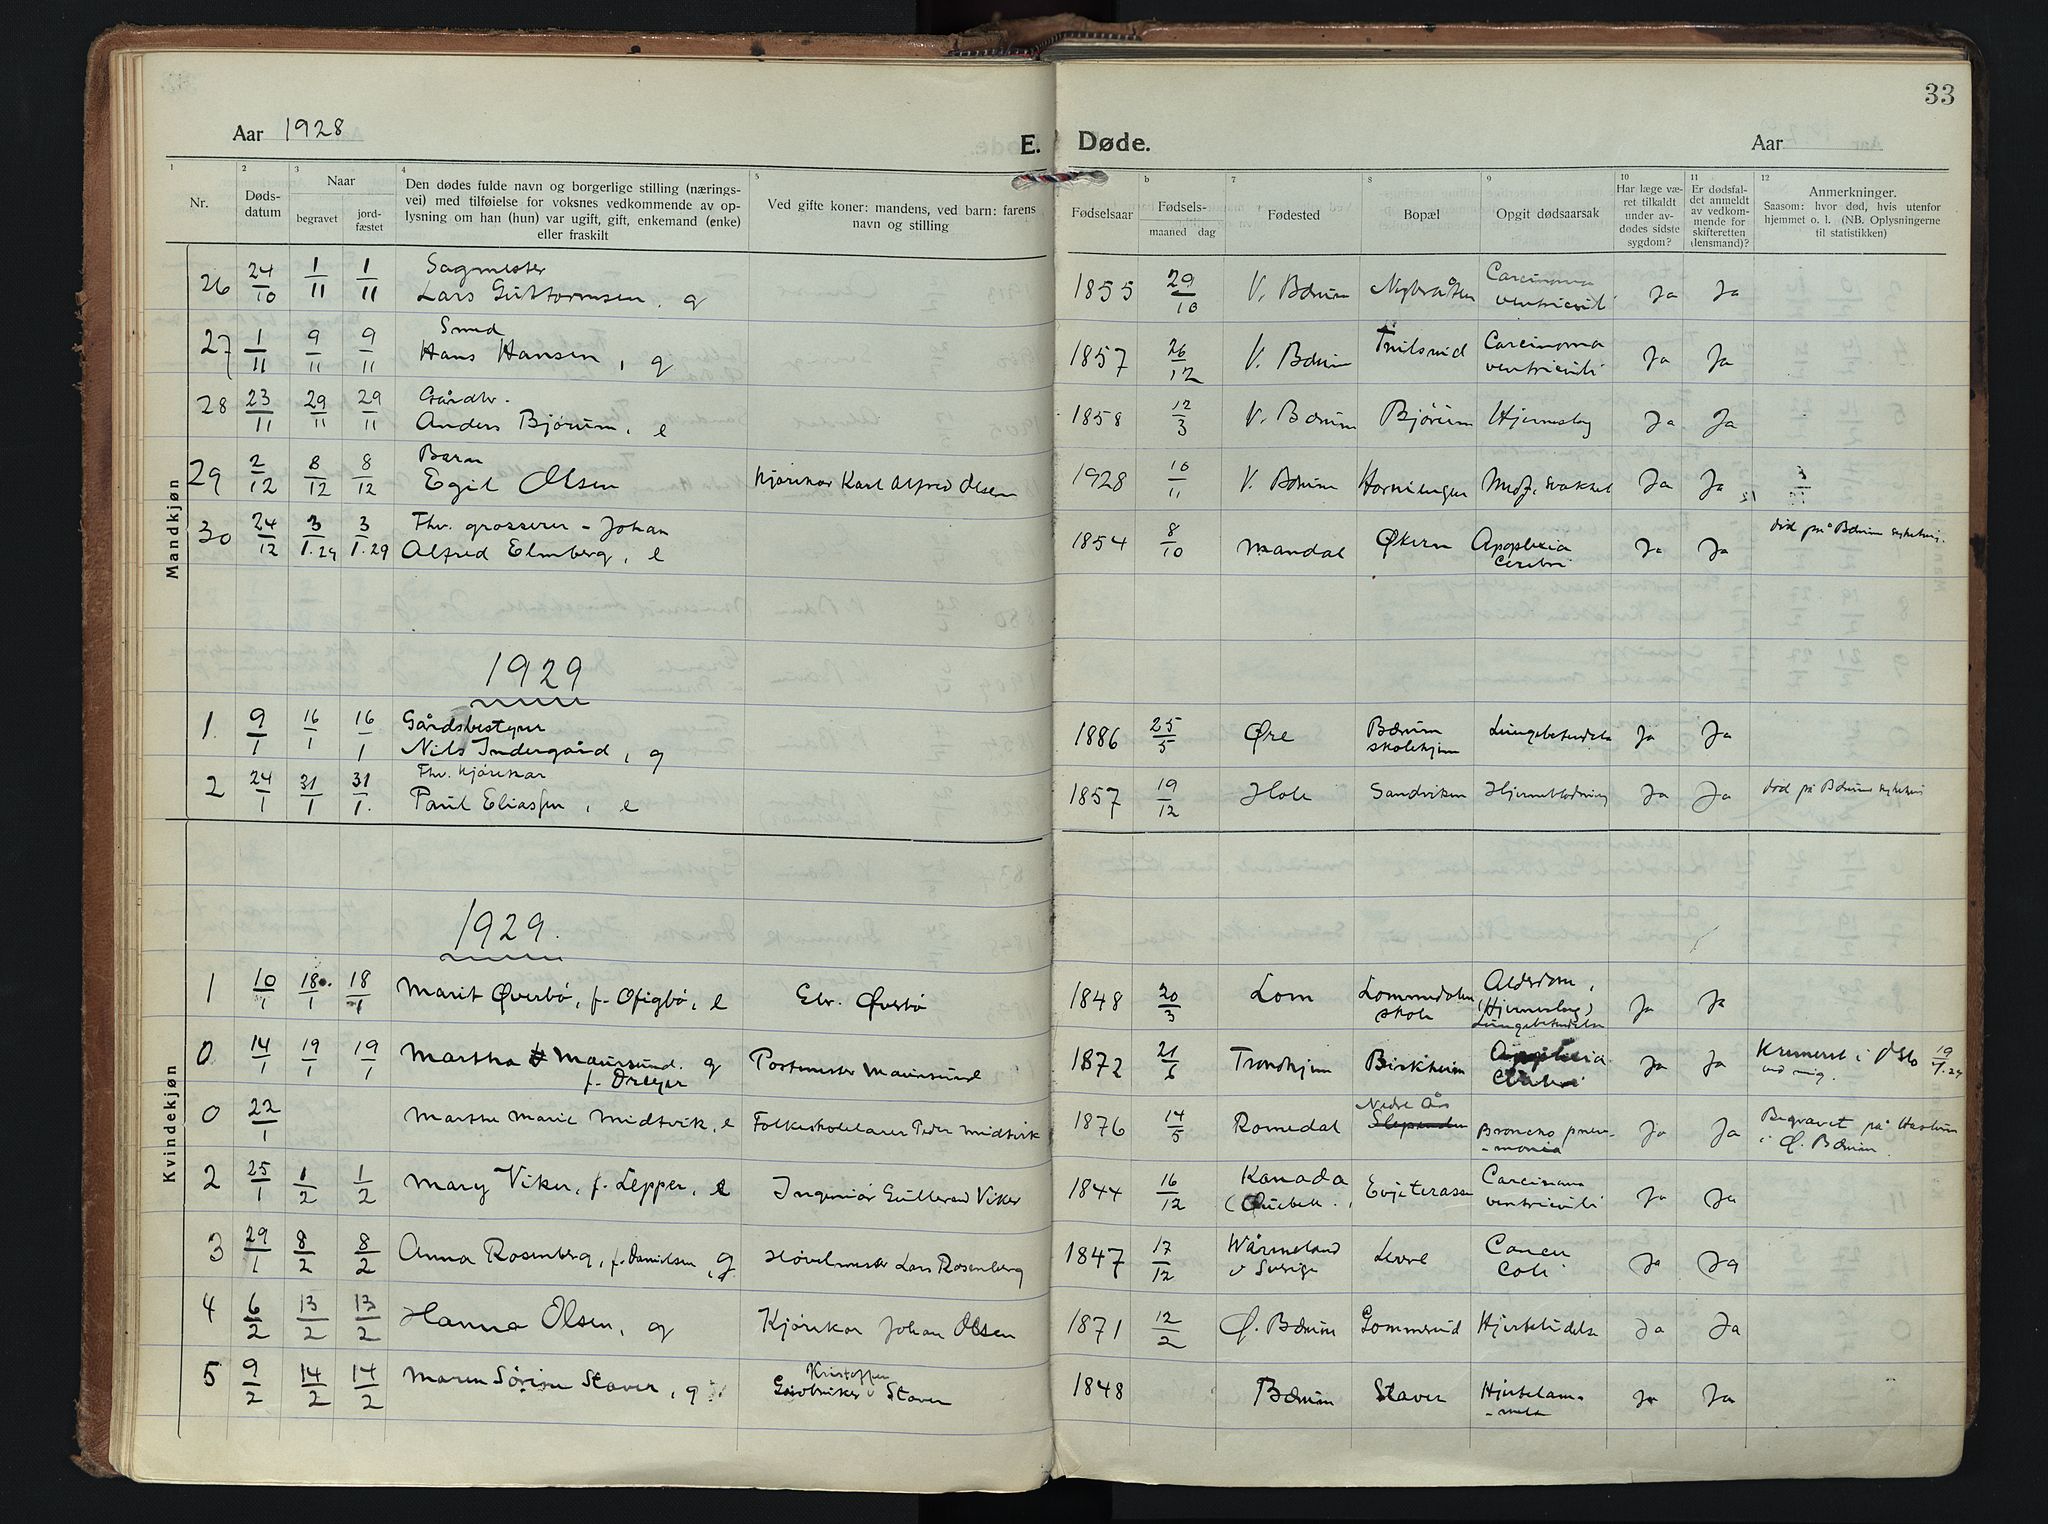 33
Aar 1928
E. Døde.
Aar
1 2 3 4 5 6 7 8 9 10 11 12
Nr.
Dødsdatum
Naar
begravet
jordfæstet
Den dødes fulde navn og borgerlige stilling (næringsvei) med tilføielse for voksnes vedkommende av oplysning om han (hun) var ugift, gift, enkemand (enke) eller fraskilt
Ved gifte koner: mandens, ved barn: farens navn og stilling
Fødselsaar
Fødselsmaaned dag
Fødested
Bopæl
Opgit dødsaarsak
Har læge været tilkaldt under avdødes sidste sygdom?
Er dødsfaldet anmeldt av vedkommende for skifteretten (lensmand)?
Anmerkninger.
Saasom: hvor død, hvis utenfor hjemmet o. l. (NB. Oplysningerne til statistikken)
Mandkjøn
26 24/10 1/11 1/11 Sagmester Lars Guttormsen, g 1855 29/10 V. Bærum Nybråten Carcinoma ventriculi Ja Ja
27 1/11 9/11 9/11 Smed Hans Hansen, g 1857 26/12 V. Bærum Carcinoma ventriculi Ja Ja
28 23/11 29/11 29/11 Gårdbr. Anders Bjørum, e 1858 12/3 V. Bærum Bjørum Hjerneslag Ja Ja
29 2/12 8/12 8/12 Barn Egil Olsen Kjørekar Karl Alfred Olsen 1928 16/11 V. Bærum Medf. svakhet Ja Ja
30 24/12 3/1.29 3/1.29 Fhv. grosserer - Johan Alfred Elmberg, e 1854 8/10 Mandal Økern Apoplexia Cerebri Ja Ja død på Bærum sykehus.
1929
1. 9/1 16/1 16/1 Gårdsbestyrer Nils Indergård, g 1886 25/5 Øre Bærum skolehjem Lungebetendelse Ja Ja
2 24/1 31/1 31/1. Fhv. kjørekar Paul Eliassen, e 1857 19/12 Hole Sandviken Hjerneblødning Ja Ja død på Bærum sykehus
Kvindekjøn
1929.
1 10/1 18/1 18/1 Marit Øverbø, f. Ofigbø, e Elv. Øverbø 1848 20/3 Lom Lommedalen skole Alderdom, (Hjerneslag) Lungebetendelse Ja Ja
0 14/1 19/1 19/1 Martha Maursund. g f. Dreyer Postmester Maursund 1872 21/6 Trondhjem Birkheim Apoplexia Cerebri Ja Ja Kremert i Oslo 19/1.29 ved mig.
0 22/1 Marthe Marie Midtvik, e Folkeskolelærer Peder Midtvik 1876 14/5 Romedal Nedre Ås Slependen Broncho pneumonia Ja Ja Begravet på Haslum i Ø. Bærum.
2 25/1 1/2 1/2 Mary Viker, f. Lepper, e Ingeniør Gulbrand Viker 1844 16/12 Kanada (Quebek. Evjeterasse Carcinoma ventriculi Ja Ja
3 29/1 8/2 8/2 Anna Rosenberg, f. Danielsen, g. Høvelmester Lars Rosenberg 1847 17/12 Wärmeland v Sverige Levre Cancer Coli Ja Ja
4 6/2 13/2 13/2 Hanna Olsen, g Kjørekar Johan Olsen 1871 12/2 Ø. Bærum Gommerud Hjertelidelse Ja Ja
5 9/2 14/2 14/2 Maren Sørine Staver, g Gårdbruker Kristoffer Staver 1848 Bærum Staver Hjertelammelse Ja Ja